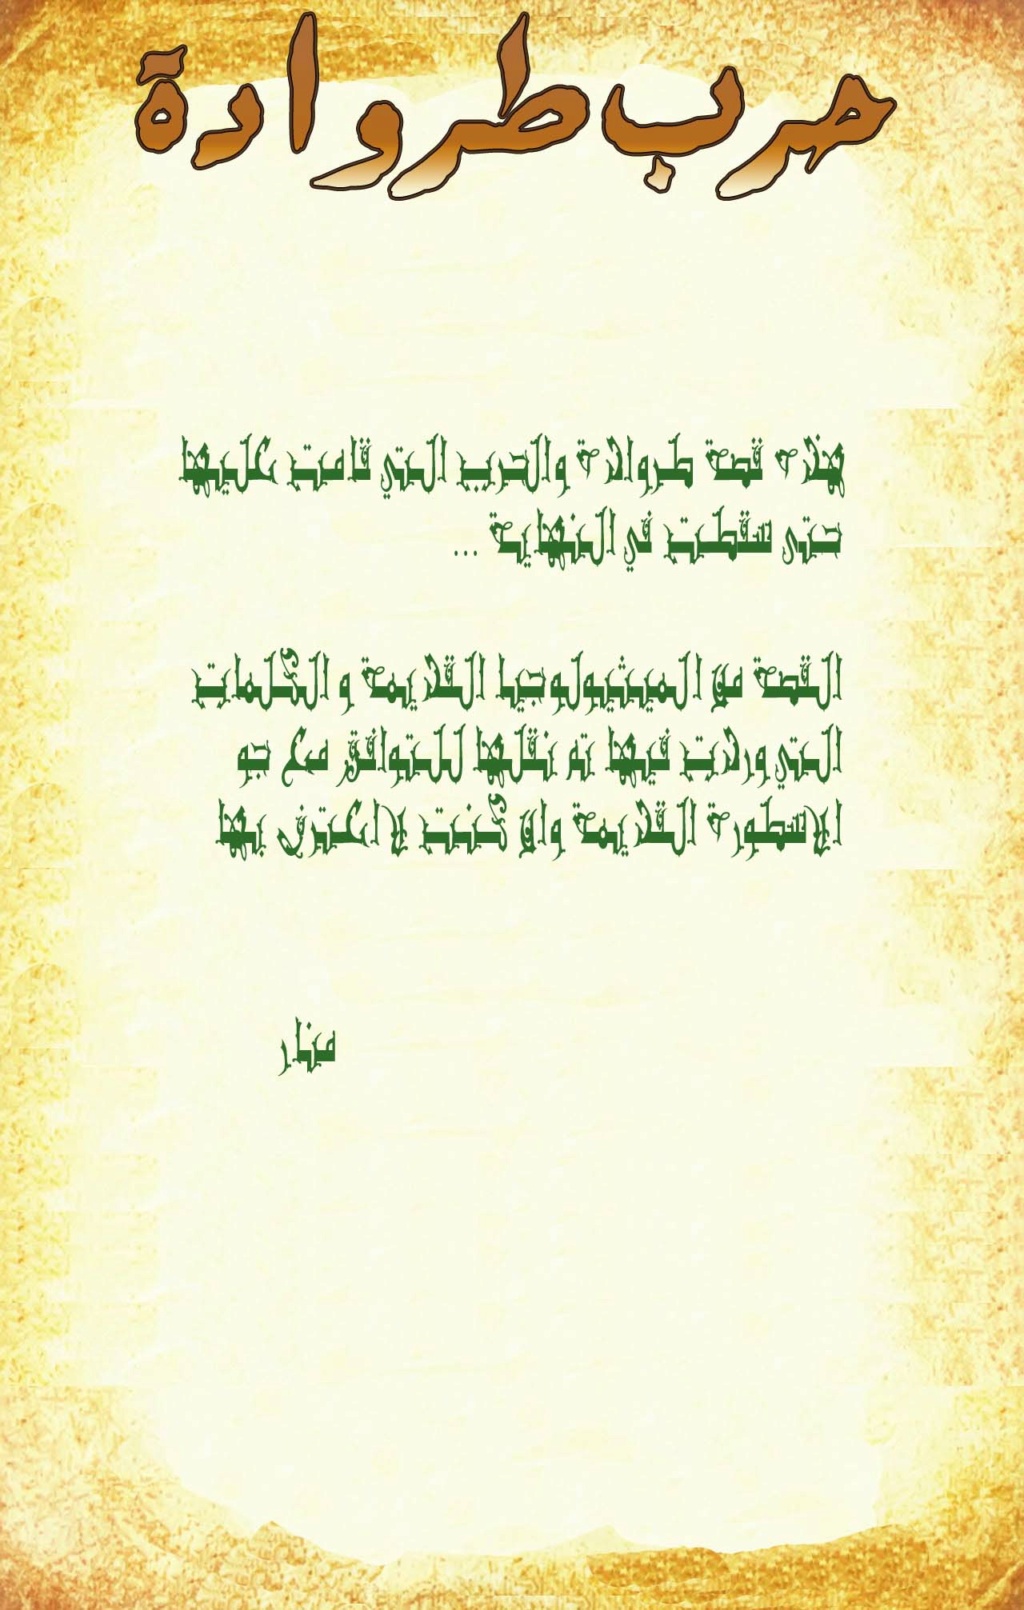 حرب طروادة
هذه قصة طروادة والحرب التي قامت عليها
حتى سقطت في النهاية ...
القصة من الميثيولوجيا القديمة و الكلمات
التي وردت فيها تم نقلها للتوافق مع جو
الاسطورة القديمة وان كنت لا اعترف بها
منار